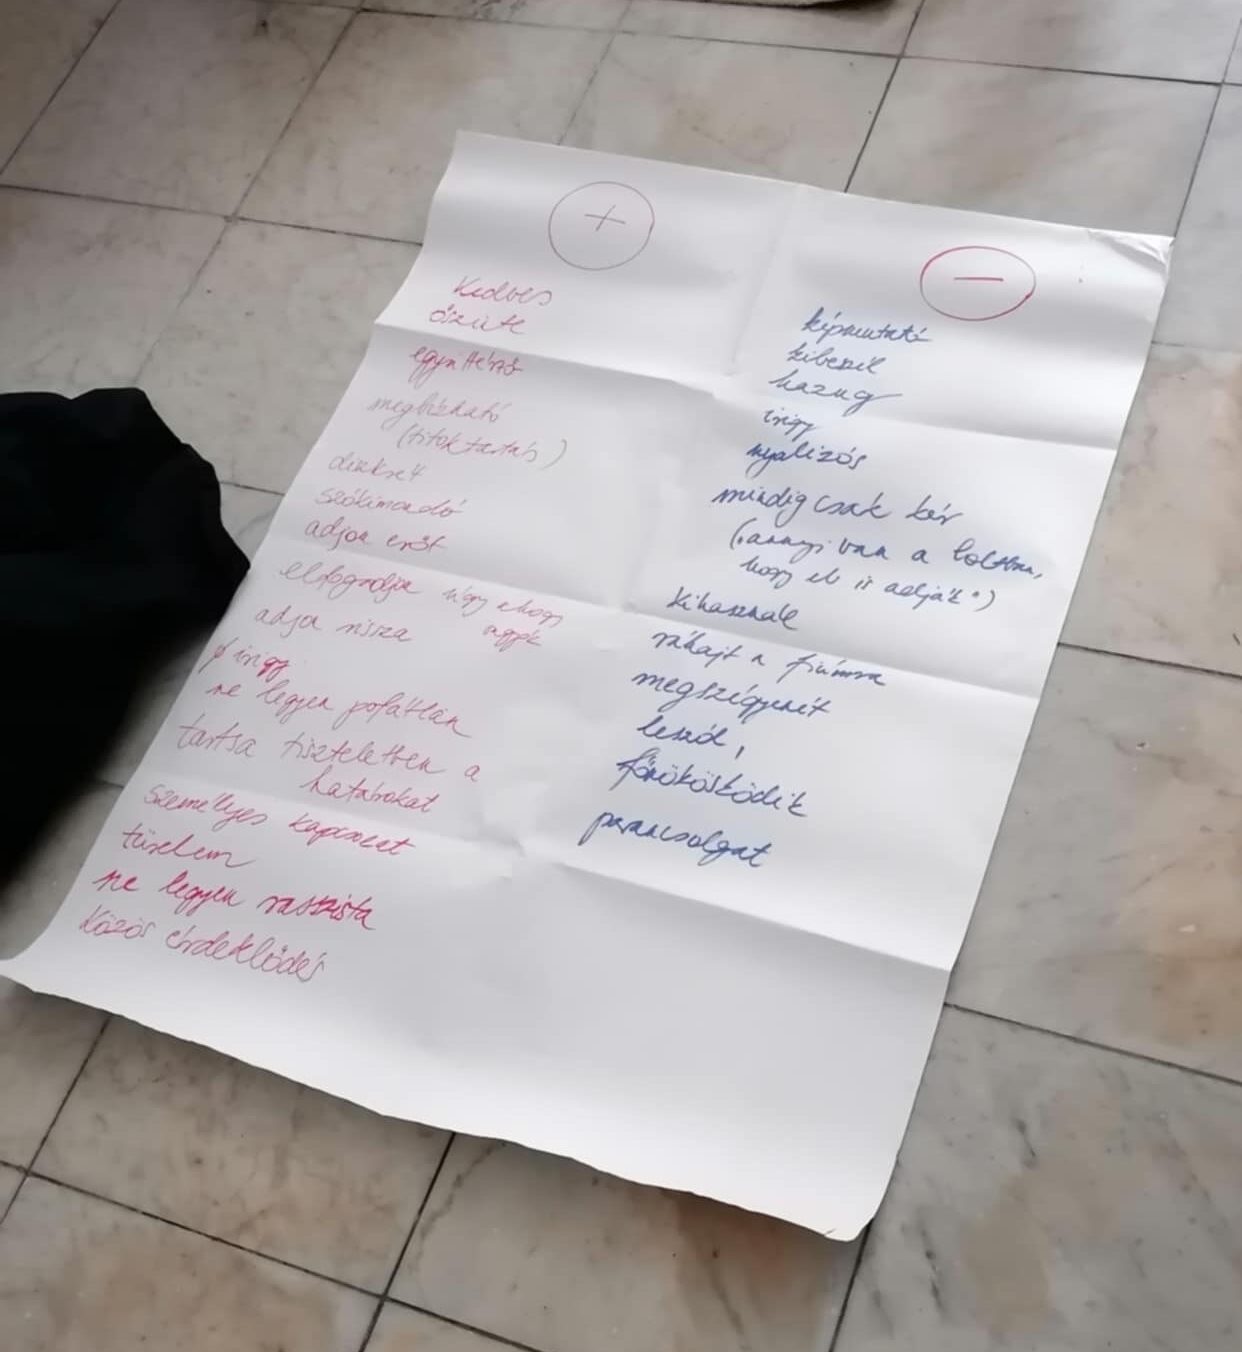 +
kedves
őszinte
együttérző
megbízható
(titoktartás)
diszkrét
szókimondó
adjon erőt
elfogadja úgy ahogy
vagyok
adja vissza
ø irigy
ne legyen pofátlan
tartsa tiszteletben a
határokat
személyes kapcsolat
türelem
ne legyen rasszista
közös érdeklődés
−
képmutató
kibeszél
hazug
irigy
nyalizós
mindig csak kér
("annyi van a boltban,
hogy el is adják")
kihasznál
ráhajt a fiúmra
megszégyenít
leszól,
főnökösködik
parancsolgat